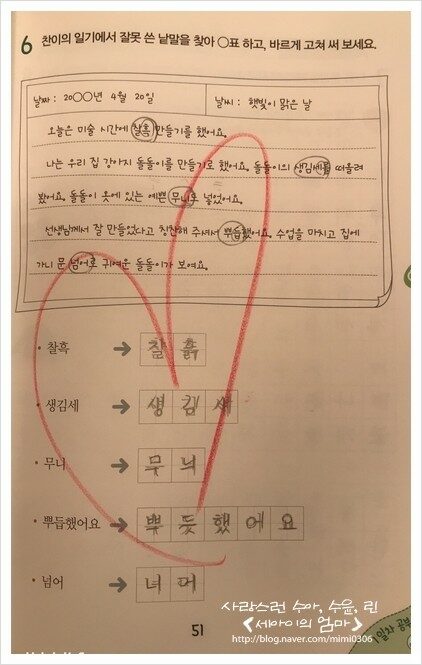 6 찬이의 일기에서 잘못 쓴 낱말을 찾아 ○표 하고, 바르게 고쳐 써 보세요.
날짜 : 20○○년 4월 20일 날씨 : 햇빛이 맑은 날
오늘은 미술 시간에 찰흑 만들기를 했어요.
나는 우리 집 강아지 돌돌이를 만들기로 했어요. 돌돌이의 생김세를 떠올려
봤어요. 돌돌이 옷에 있는 예쁜 무니로 넣었어요.
선생님께서 잘 만들었다고 칭찬해 주셔서 뿌듭했어요. 수업을 마치고 집에
가니 문 넘어로 귀여운 돌돌이가 보여요.
• 찰흑 → 찰 흙
• 생김세 → 생 김 새
• 무니 → 무 늬
• 뿌듭했어요 → 뿌 듯 했 어 요
• 넘어 → 너 머
51
사랑스런 수아, 수윤, 린
<세아이의 엄마>
http://blog.naver.com/mimi0306
일차 공부